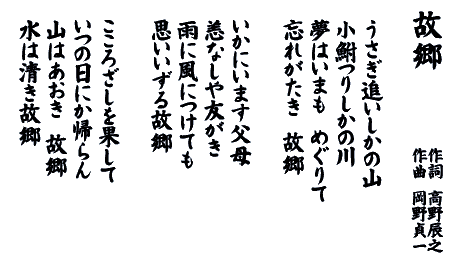 故郷
作詞 高野辰之
作曲 岡野貞一
うさぎ追いしかの山
小鮒つりしかの川
夢はいまも めぐりて
忘れがたき 故郷
いかにいます父母
恙なしや友がき
雨に風につけても
思いいずる故郷
こころざしを果して
いつの日にか帰らん
山はあおき 故郷
水は清き故郷